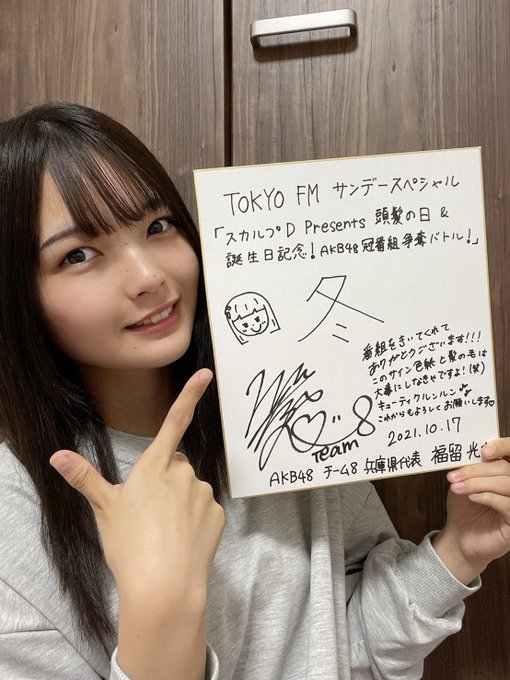 TOKYO FM サンデースペシャル
「スカルプD Presents 頭髪の日 &
誕生日記念！AKB48冠番組争奪バトル！」
冬
番組をきいてくれて
ありがとうございます!!!
このサイン色紙と髪の毛は
大事にしなきゃですよ!(笑)
キューティクルンルン♪
これからもよろしくお願いします
2021.10.17
Team 8
AKB48 チーム8 兵庫県代表 福留 光